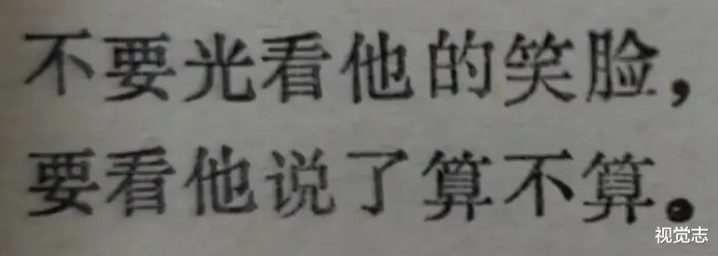 不要光看他的笑脸，
要看他说了算不算。
视觉志